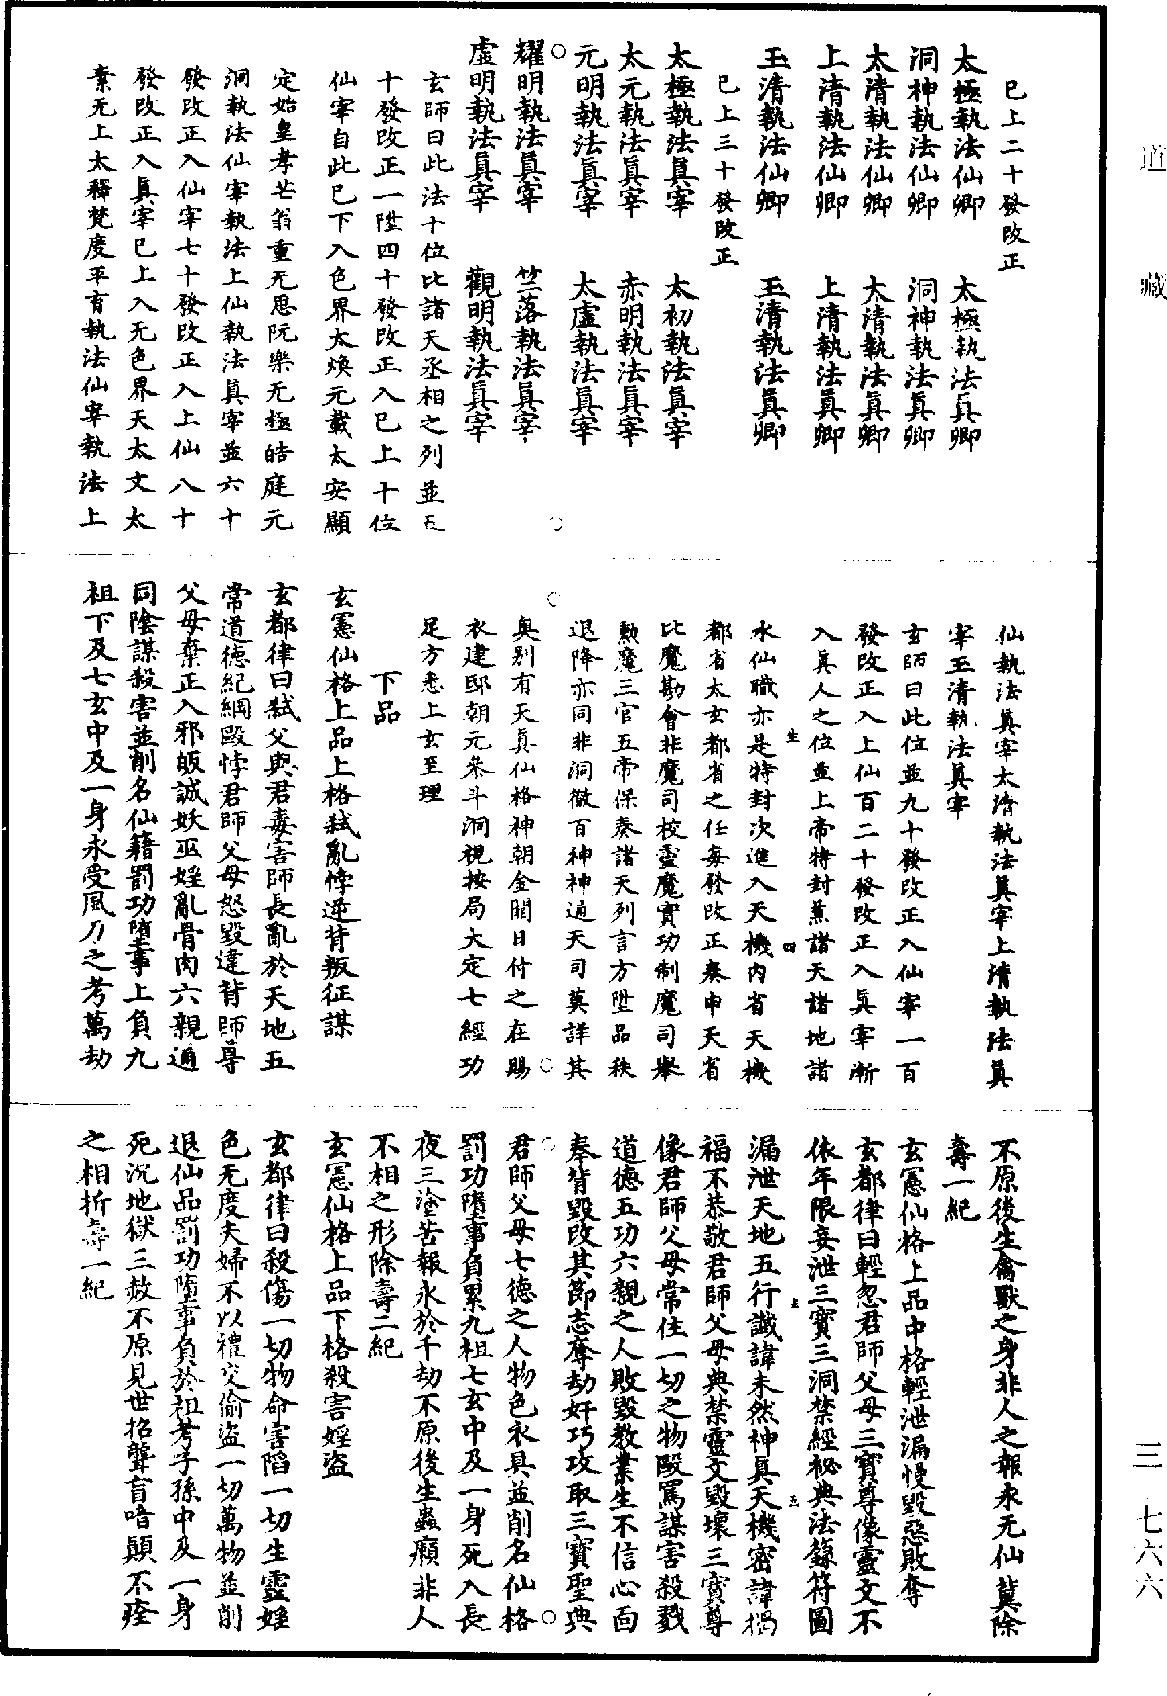 道藏
三 七六六
已上二十發改正
太極執法仙卿 太極執法真卿
洞神執法仙卿 洞神執法真卿
太清執法仙卿 太清執法真卿
上清執法仙卿 上清執法真卿
玉清執法仙卿 玉清執法真卿
已上三十發改正
太極執法真宰 太初執法真宰
太元執法真宰 赤明執法真宰
元明執法真宰 太虛執法真宰
耀明執法真宰 竺落執法真宰
虛明執法真宰 觀明執法真宰
玄師曰此法十位比諸天丞相之列並五
十發改正一陞四十發改正入已上十位
仙宰自此已下入色界太煥元載太安顯
定始皇孝芒翁重无思阮樂无極皓庭元
洞執法仙宰執法上仙執法真宰並六十
發改正入仙宰七十發改正入上仙八十
發改正入真宰已上入无色界天太文太
素无上太釋梵度平育執法仙宰執法上
仙執法真宰太清執法真宰上清執法真
宰玉清執法真宰
玄師曰此位並九十發改正入仙宰一百
發改正入上仙百二十發改正入真宰漸
入真人之位並上帝特封兼諸天諸地諸
水仙職亦是特封次進入天機內省天機
都省太玄都省之任每發改正奏申天省
比魔勘會非魔司校靈魔實功制魔司舉
勲魔三官五帝保奏諸天列言方陞品秩
退降亦同非洞徹百神神通天司莫詳其
奧別有天真仙格神朝金闕日付之在賜
衣建邸朝元朱斗洞視按局大定七經功
足方悉上玄至理
下品
玄憲仙格上品上格弒亂悖逆背叛征謀
玄都律曰弒父與君毒害師長亂於天地五
常道德紀綱毆悖君師父母怒毀違背師尊
父母棄正入邪皈誠妖巫婬亂骨肉六親通
同陰謀殺害並削名仙籍罰功墮事上負九
祖下及七玄中及一身永受風刀之考萬劫
不原後生禽獸之身非人之報永无仙冀除
壽一紀
玄憲仙格上品中格輕泄漏慢毀惡敗奪
玄都律曰輕忽君師父母三寶尊像靈文不
依年限妄泄三寶三洞禁經秘典法籙符圖
漏泄天地五行讖諱未然神真天機密諱損
福不恭敬君師父母典禁靈文毀壞三寶尊
像君師父母常住一切之物毆罵謀害殺戮
道德五功六親之人敗毀教業生不信心面
奉背毀改其節志奪劫奸巧攻取三寶聖典
君師父母七德之人物色衣具並削名仙格
罰功墮事負累九祖七玄中及一身死入長
夜三塗苦報永於千劫不原後生蟲癩非人
不相之形除壽二紀
玄憲仙格上品下格殺害婬盜
玄都律曰殺傷一切物命害陷一切生靈婬
色无度夫婦不以禮交偷盜一切萬物並削
退仙品罰功墮事負於祖考子孫中及一身
死沉地獄三赦不原見世招聾盲喑顛不痊
之相折壽一紀